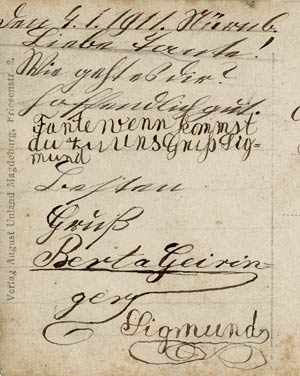 Den 4.1.1911. Nürnb.
Liebe Tante!
Wie geht es dir?
hoffendlich gut.
Tante wenn kommst
du zu uns Gruß Sig-
mund
Besten
Gruß
Berta Geirin-
ger
Sigmund
Verlag August Unland Magdeburg, Friesenstr. 2.